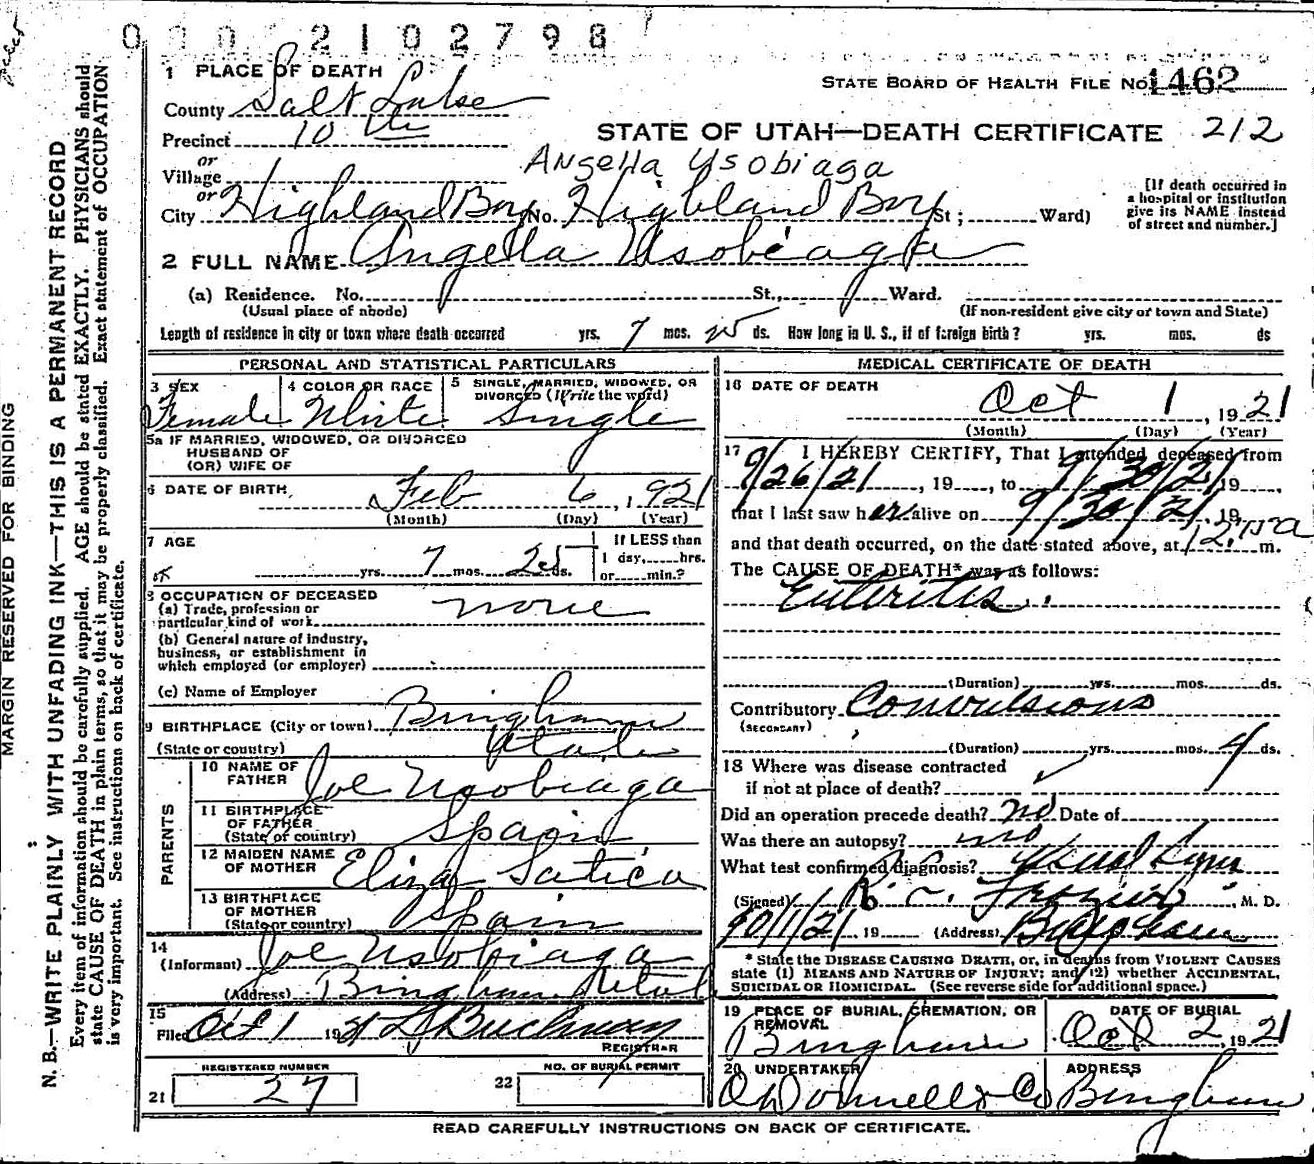 0 0 0 2 1 0 2 7 9 8
1 PLACE OF DEATH
STATE BOARD OF HEALTH FILE No. 1462
County Salt Lake
Precinct 10 th
STATE OF UTAH—DEATH CERTIFICATE 212
or
Village
Angella Usobiaga
or
City Highland Boy No. Highland Boy St; Ward)
[If death occurred in
a hospital or institution
give its NAME instead
of street and number.]
2 FULL NAME Angella Usobiaga
(a) Residence. No. St., Ward.
(Usual place of abode)
(If non-resident give city or town and State)
Length of residence in city or town where death occurred yrs. 7 mos. 25 ds. How long in U. S., if of foreign birth? yrs. mos. ds
PERSONAL AND STATISTICAL PARTICULARS
3 SEX
Female
4 COLOR OR RACE
White
5 SINGLE, MARRIED, WIDOWED, OR
DIVORCED (Write the word)
Single
5a IF MARRIED, WIDOWED, OR DIVORCED
HUSBAND OF
(OR) WIFE OF
6 DATE OF BIRTH Feb 6, 1921
(Month) (Day) (Year)
7 AGE
yrs. 7 mos. 25 ds.
If LESS than
1 day, hrs.
or min.?
8 OCCUPATION OF DECEASED
(a) Trade, profession or
particular kind of work none
(b) General nature of industry,
business, or establishment in
which employed (or employer)
(c) Name of Employer
9 BIRTHPLACE (City or town) Bingham
(State or country) Utah
PARENTS
10 NAME OF
FATHER Joe Usobiaga
11 BIRTHPLACE
OF FATHER
(State or country) Spain
12 MAIDEN NAME
OF MOTHER Eliza Satica
13 BIRTHPLACE
OF MOTHER
(State or country) Spain
14
(Informant) Joe Usobiaga
(Address) Bingham Utah
15
Filed Oct 1 1921 Buchman
REGISTRAR
REGISTERED NUMBER
21 27
NO. OF BURIAL PERMIT
22
MEDICAL CERTIFICATE OF DEATH
16 DATE OF DEATH
Oct 1, 1921
(Month) (Day) (Year)
17 I HEREBY CERTIFY, That I attended deceased from
9/26/21, 19, to 9/30/21 19,
that I last saw her alive on 9/30/21, 19,
and that death occurred, on the date stated above, at 12.15a m.
The CAUSE OF DEATH* was as follows:
Enteritis.
(Duration) yrs. mos. ds.
Contributory Convulsions
(SECONDARY)
(Duration) yrs. mos. 4 ds.
18 Where was disease contracted
if not at place of death?
Did an operation precede death? no Date of
Was there an autopsy? no
What test confirmed diagnosis? Usual Sym
(Signed) R. Frazier, M. D.
10/1/21, 19 (Address) Bingham
* State the DISEASE CAUSING DEATH, or, in deaths from VIOLENT CAUSES
state (1) MEANS AND NATURE OF INJURY; and (2) whether ACCIDENTAL,
SUICIDAL OR HOMICIDAL. (See reverse side for additional space.)
19 PLACE OF BURIAL, CREMATION, OR
REMOVAL
Bingham
DATE OF BURIAL
Oct 2, 1921
20 UNDERTAKER
O'Donnell & Co
ADDRESS
Bingham
READ CAREFULLY INSTRUCTIONS ON BACK OF CERTIFICATE.
MARGIN RESERVED FOR BINDING
N. B.—WRITE PLAINLY WITH UNFADING INK—THIS IS A PERMANENT RECORD
Every item of information should be carefully supplied. AGE should be stated EXACTLY. PHYSICIANS should
state CAUSE OF DEATH in plain terms, so that it may be properly classified. Exact statement of OCCUPATION
is very important. See instructions on back of certificate.